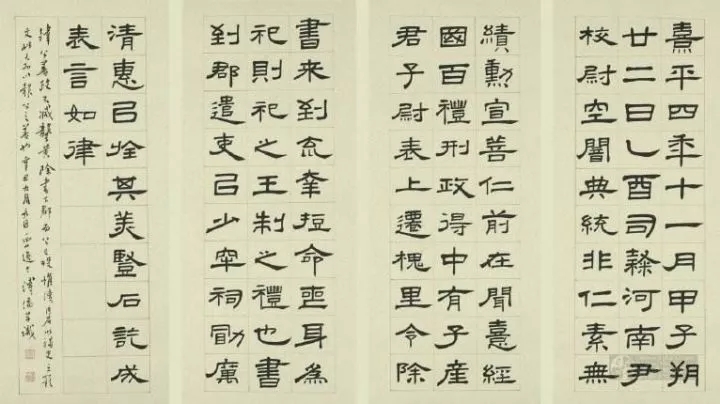 熹平四年十一月甲子朔
廿二日乙酉司隸河南尹
校尉空闇典統非仁素無
績勳宣善仁前在聞憙經
國百禮刑政得中有子產
君子尉表上遷槐里令除
書来到短命喪身為
祀則祀之王制之禮也書
到郡遣吏㠯少牢祠勖厲
清惠㠯旌其美豎石訖成
表言如律
韓公善政不減龔黃除書